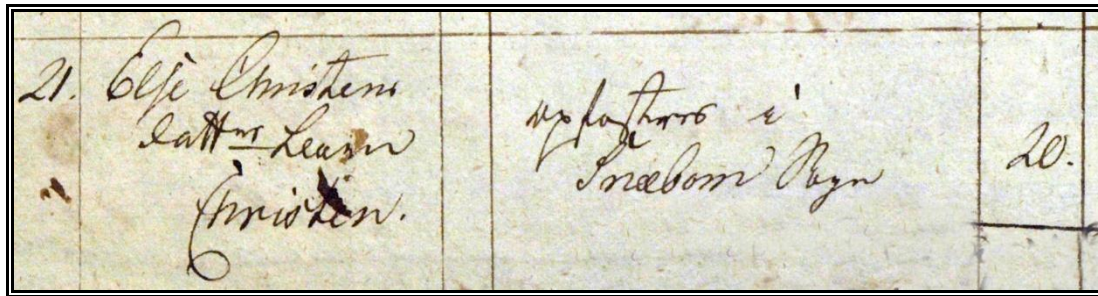 21. Else Christens
datter Hans
Christen.
opfostres i
Snæbom Sogn
20.